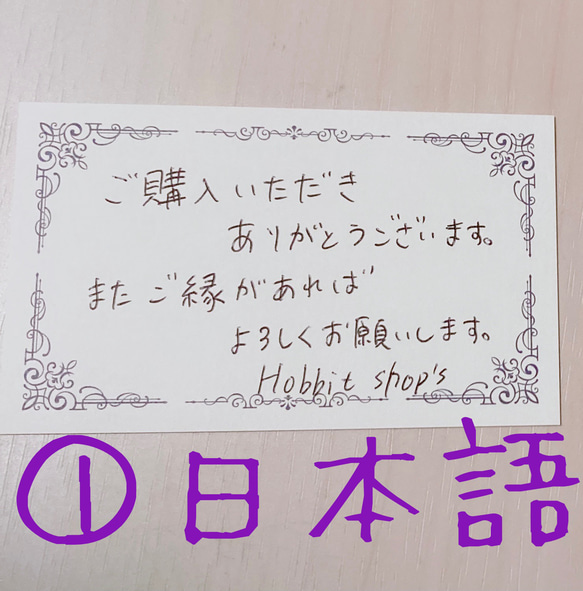 ご購入いただき
ありがとうございます。
またご縁があれば
よろしくお願いします。
Hobbit shop's
①日本語